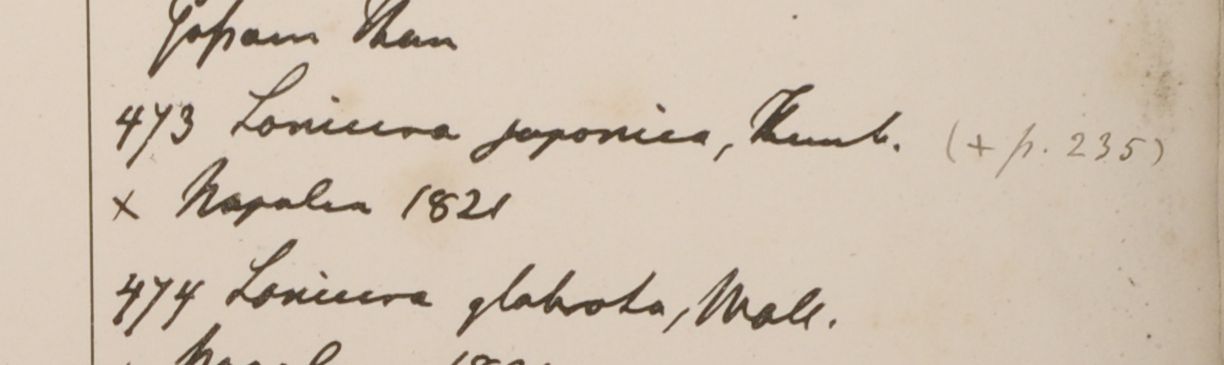 473 Lonicera japonica, Thunb. (+ p. 235)
x Napalia 1821
474 Lonicera glabrata, Wall.